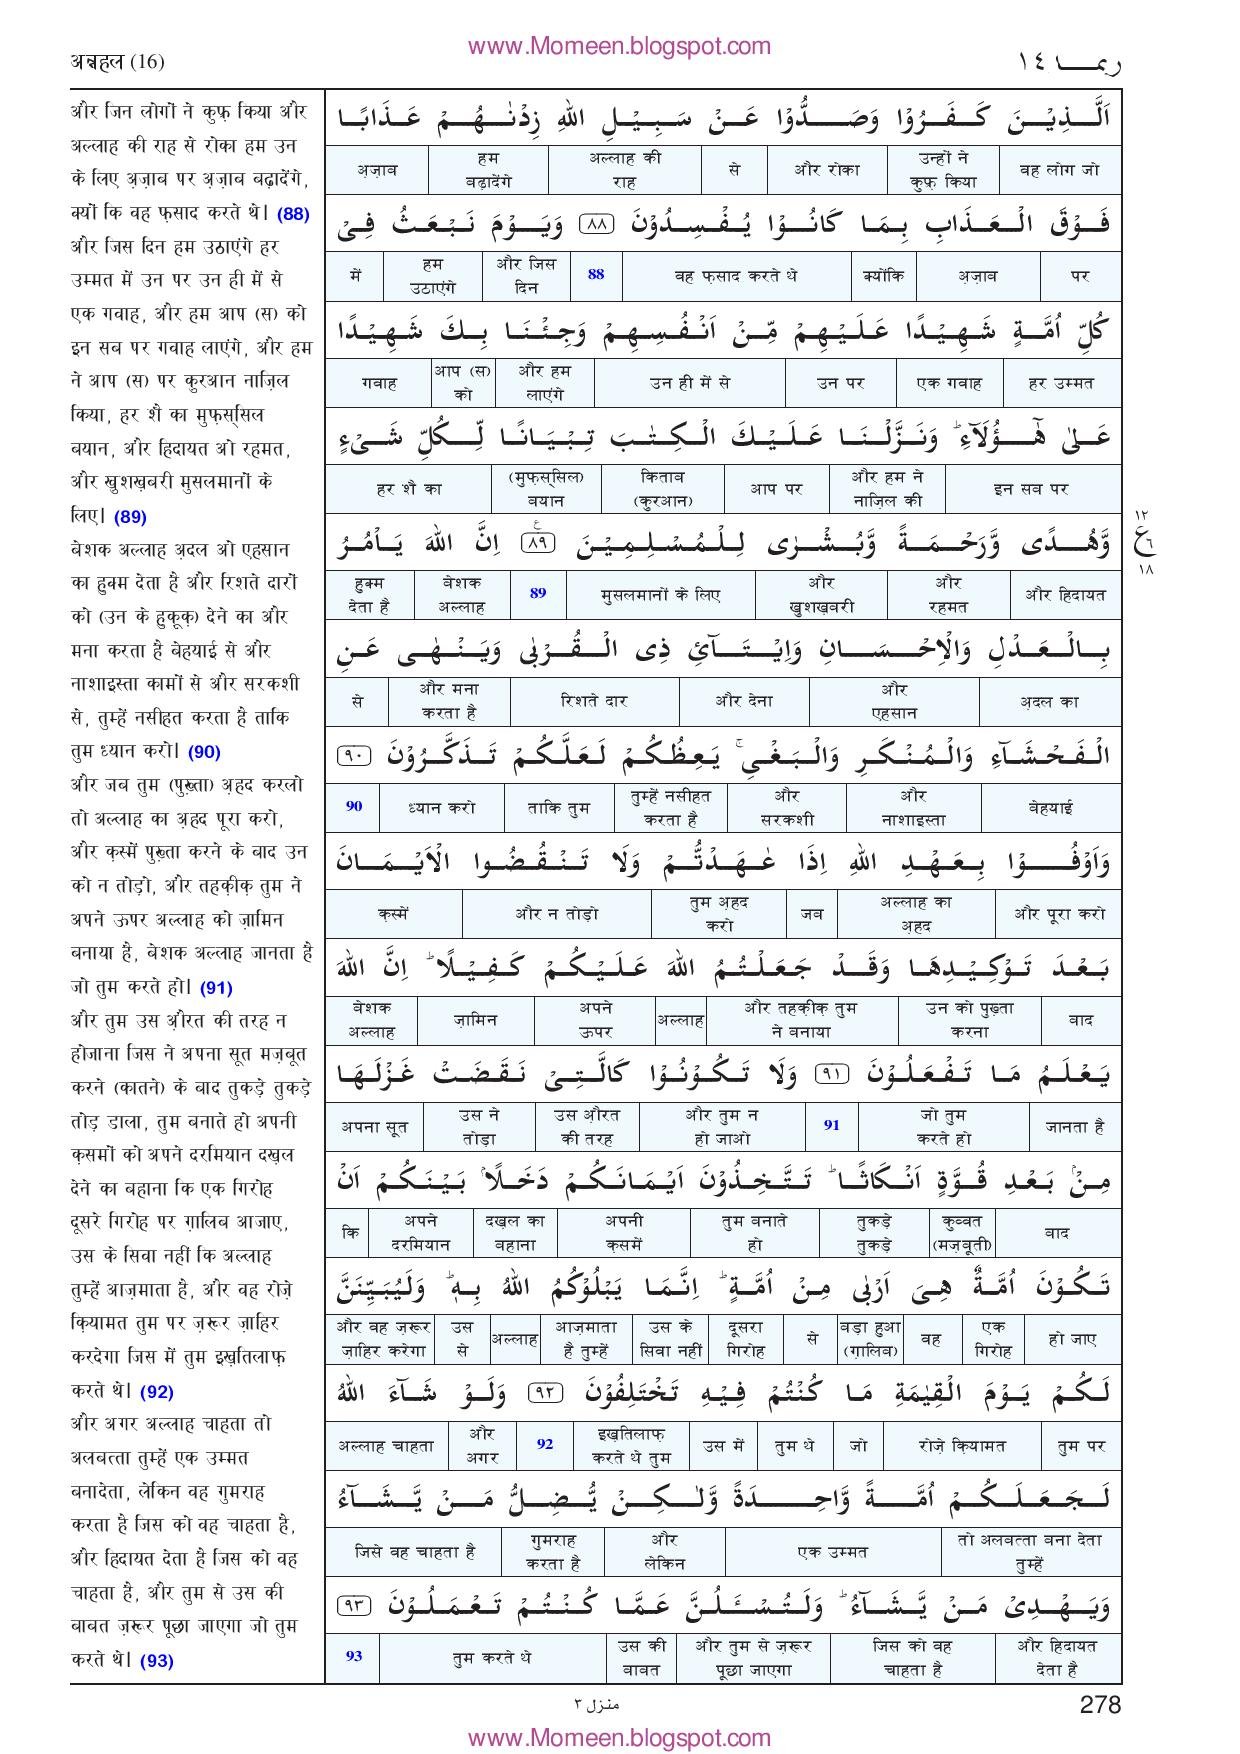 www.Momeen.blogspot.com
अन्नहल (16)
ربما ١٤
और जिन लोगों ने कुफ़्र किया और
अल्लाह की राह से रोका हम उन
के लिए अ़ज़ाब पर अ़ज़ाब बढ़ादेंगे,
क्यों कि वह फ़साद करते थे। (88)
और जिस दिन हम उठाएंगे हर
उम्मत में उन पर उन ही में से
एक गवाह, और हम आप (स) को
इन सब पर गवाह लाएंगे, और हम
ने आप (स) पर कुरआन नाज़िल
किया, हर शै का मुफ़स्सिल
बयान, और हिदायत ओ रहमत,
और खुशख़बरी मुसलमानों के
लिए। (89)
बेशक अल्लाह अ़दल ओ एहसान
का हुक्म देता है और रिश्ते दारों
को (उन के हुकूक़) देने का और
मना करता है बेहयाई से और
नाशाइस्ता कामों से और सरकशी
से, तुम्हें नसीहत करता है ताकि
तुम ध्यान करो। (90)
और जब तुम (पुख़्ता) अ़हद करलो
तो अल्लाह का अ़हद पूरा करो,
और क़स्में पुख़्ता करने के बाद उन
को न तोड़ो, और तहक़ीक़ तुम ने
अपने ऊपर अल्लाह को ज़ामिन
बनाया है, बेशक अल्लाह जानता है
जो तुम करते हो। (91)
और तुम उस औ़रत की तरह न
होजाना जिस ने अपना सूत मज़बूत
करने (कातने) के बाद तुकड़े तुकड़े
तोड़ डाला, तुम बनाते हो अपनी
क़समों को अपने दरमियान दख़ल
देने का बहाना कि एक गिरोह
दूसरे गिरोह पर ग़ालिब आजाए,
उस के सिवा नहीं कि अल्लाह
तुम्हें आज़माता है, और वह रोज़े
क़ियामत तुम पर ज़रूर ज़ाहिर
करदेगा जिस में तुम इख़तिलाफ़
करते थे। (92)
और अगर अल्लाह चाहता तो
अलबत्ता तुम्हें एक उम्मत
बनादेता, लेकिन वह गुमराह
करता है जिस को वह चाहता है,
और हिदायत देता है जिस को वह
चाहता है, और तुम से उस की
बाबत ज़रूर पूछा जाएगा जो तुम
करते थे। (93)
اَلَّذِيْنَ كَفَرُوْا وَصَدُّوْا عَنْ سَبِيْلِ اللهِ زِدْنٰهُمْ عَذَابًا
वह लोग जो | उन्हों ने कुफ़्र किया | और रोका | से | अल्लाह की राह | हम बढ़ादेंगे | अ़ज़ाब
فَوْقَ الْعَذَابِ بِمَا كَانُوْا يُفْسِدُوْنَ ﴿٨٨﴾ وَيَوْمَ نَبْعَثُ فِيْ
पर | अ़ज़ाब | क्योंकि | वह फ़साद करते थे | 88 | और जिस दिन | हम उठाएंगे | में
كُلِّ اُمَّةٍ شَهِيْدًا عَلَيْهِمْ مِّنْ اَنْفُسِهِمْ وَجِئْنَا بِكَ شَهِيْدًا
हर उम्मत | एक गवाह | उन पर | उन ही में से | और हम लाएंगे | आप (स) को | गवाह
عَلٰى هٰٓؤُلَآءِ ؕ وَنَزَّلْنَا عَلَيْكَ الْكِتٰبَ تِبْيَانًا لِّكُلِّ شَىْءٍ
इन सब पर | और हम ने नाज़िल की | आप पर | किताब (कुरआन) | (मुफ़स्सिल) बयान | हर शै का
وَّهُدًى وَّرَحْمَةً وَّبُشْرٰى لِلْمُسْلِمِيْنَ ﴿٨٩﴾ اِنَّ اللهَ يَاْمُرُ
ع
١٢
ع ٦
١٨
और हिदायत | और रहमत | और खुशख़बरी | मुसलमानों के लिए | 89 | बेशक अल्लाह | हुक्म देता है
بِالْعَدْلِ وَالْاِحْسَانِ وَاِيْتَآئِ ذِى الْقُرْبٰى وَيَنْهٰى عَنِ
अ़दल का | और एहसान | और देना | रिश्ते दार | और मना करता है | से
الْفَحْشَآءِ وَالْمُنْكَرِ وَالْبَغْىِ ۚ يَعِظُكُمْ لَعَلَّكُمْ تَذَكَّرُوْنَ ﴿٩٠﴾
बेहयाई | और नाशाइस्ता | और सरकशी | तुम्हें नसीहत करता है | ताकि तुम | ध्यान करो | 90
وَاَوْفُوْا بِعَهْدِ اللهِ اِذَا عٰهَدْتُّمْ وَلَا تَنْقُضُوا الْاَيْمَانَ
और पूरा करो | अल्लाह का अ़हद | जब | तुम अ़हद करो | और न तोड़ो | क़स्में
بَعْدَ تَوْكِيْدِهَا وَقَدْ جَعَلْتُمُ اللهَ عَلَيْكُمْ كَفِيْلًا ؕ اِنَّ اللهَ
बाद | उन को पुख़्ता करना | और तहक़ीक़ तुम ने बनाया | अल्लाह | अपने ऊपर | ज़ामिन | बेशक अल्लाह
يَعْلَمُ مَا تَفْعَلُوْنَ ﴿٩١﴾ وَلَا تَكُوْنُوْا كَالَّتِىْ نَقَضَتْ غَزْلَهَا
जानता है | जो तुम करते हो | 91 | और तुम न हो जाओ | उस औ़रत की तरह | उस ने तोड़ा | अपना सूत
مِنْۢ بَعْدِ قُوَّةٍ اَنْكَاثًا ؕ تَتَّخِذُوْنَ اَيْمَانَكُمْ دَخَلًاۢ بَيْنَكُمْ اَنْ
बाद | कुव्वत (मज़बूती) | तुकड़े तुकड़े | तुम बनाते हो | अपनी क़समें | दख़ल का बहाना | अपने दरमियान | कि
تَكُوْنَ اُمَّةٌ هِىَ اَرْبٰى مِنْ اُمَّةٍ ؕ اِنَّمَا يَبْلُوْكُمُ اللهُ بِهٖ ؕ وَلَيُبَيِّنَنَّ
हो जाए | एक गिरोह | वह | बड़ा हुआ (ग़ालिब) | से | दूसरा गिरोह | उस के सिवा नहीं | आज़माता है तुम्हें | अल्लाह | उस से | और वह ज़रूर ज़ाहिर करेगा
لَكُمْ يَوْمَ الْقِيٰمَةِ مَا كُنْتُمْ فِيْهِ تَخْتَلِفُوْنَ ﴿٩٢﴾ وَلَوْ شَآءَ اللهُ
तुम पर | रोज़े क़ियामत | जो | तुम थे | उस में | इख़तिलाफ़ करते थे तुम | 92 | और अगर | अल्लाह चाहता
لَجَعَلَكُمْ اُمَّةً وَّاحِدَةً وَّلٰكِنْ يُّضِلُّ مَنْ يَّشَآءُ
तो अलबत्ता बना देता तुम्हें | एक उम्मत | और लेकिन | गुमराह करता है | जिसे वह चाहता है
وَيَهْدِىْ مَنْ يَّشَآءُ ؕ وَلَتُسْـَٔلُنَّ عَمَّا كُنْتُمْ تَعْمَلُوْنَ ﴿٩٣﴾
और हिदायत देता है | जिस को वह चाहता है | और तुम से ज़रूर पूछा जाएगा | उस की बाबत | तुम करते थे | 93
منزل ٣
278
www.Momeen.blogspot.com